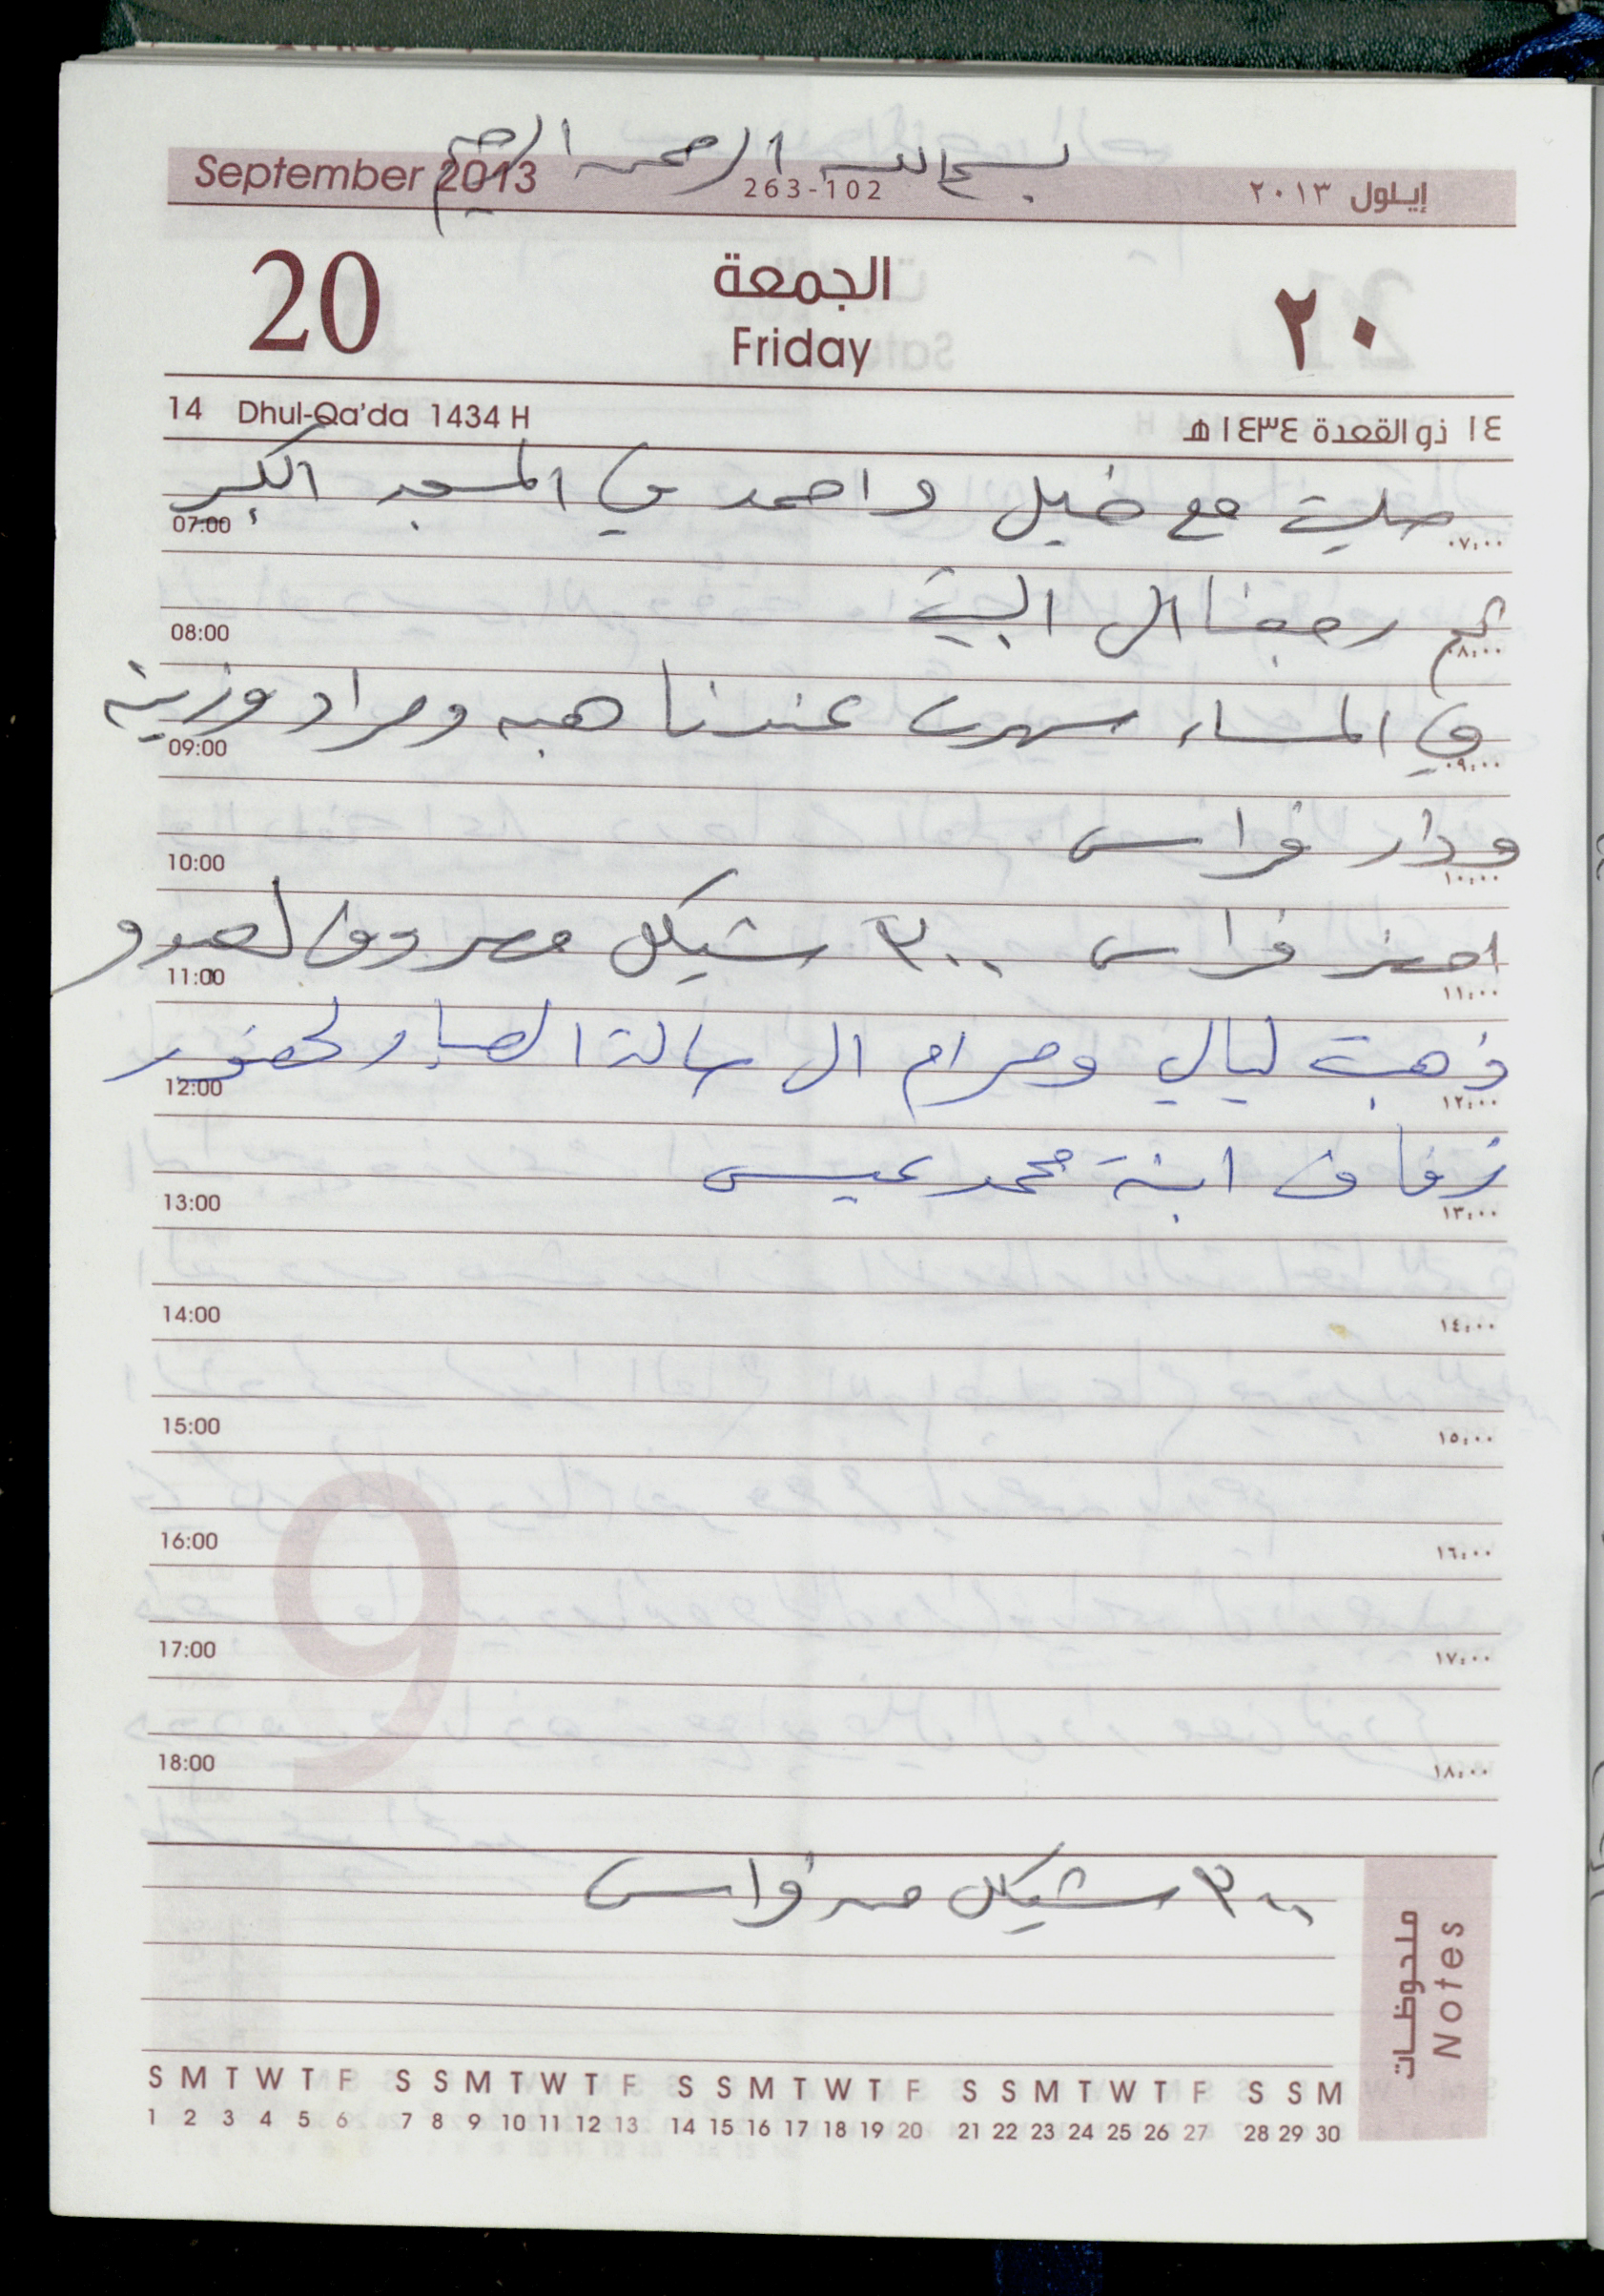 بسم الله الرحمن الرحيم
September 2013 263-102 إيلول ٢٠١٣
20 الجمعة ٢٠
Friday
14 Dhul-Qa'da 1434 H ١٤ ذو القعدة ١٤٣٤ هـ
صليت مع خليل واحمد في المسجد الكبير
07:00 ٠٧:٠٠
ثم رجعنا الى البيت
08:00 ٠٨:٠٠
في المساء سهرت عندنا هبه ومراد وزينة
09:00 ٠٩:٠٠
ودار فراس
10:00 ١٠:٠٠
احضر فراس ٣٠٠ شيكل مصروف لعدو
11:00 ١١:٠٠
ذهبت ليالي ومرام الى صالة الصبار لحضور
12:00 ١٢:٠٠
زفاف ابنة محمد عيسى
13:00 ١٣:٠٠
14:00 ١٤:٠٠
15:00 ١٥:٠٠
16:00 ١٦:٠٠
17:00 ١٧:٠٠
18:00 ١٨:٠٠
9
٣٠٠ شيكل من فراس
ملحوظات
Notes
S M T W T F S S M T W T F S S M T W T F S S M T W T F S S M
1 2 3 4 5 6 7 8 9 10 11 12 13 14 15 16 17 18 19 20 21 22 23 24 25 26 27 28 29 30